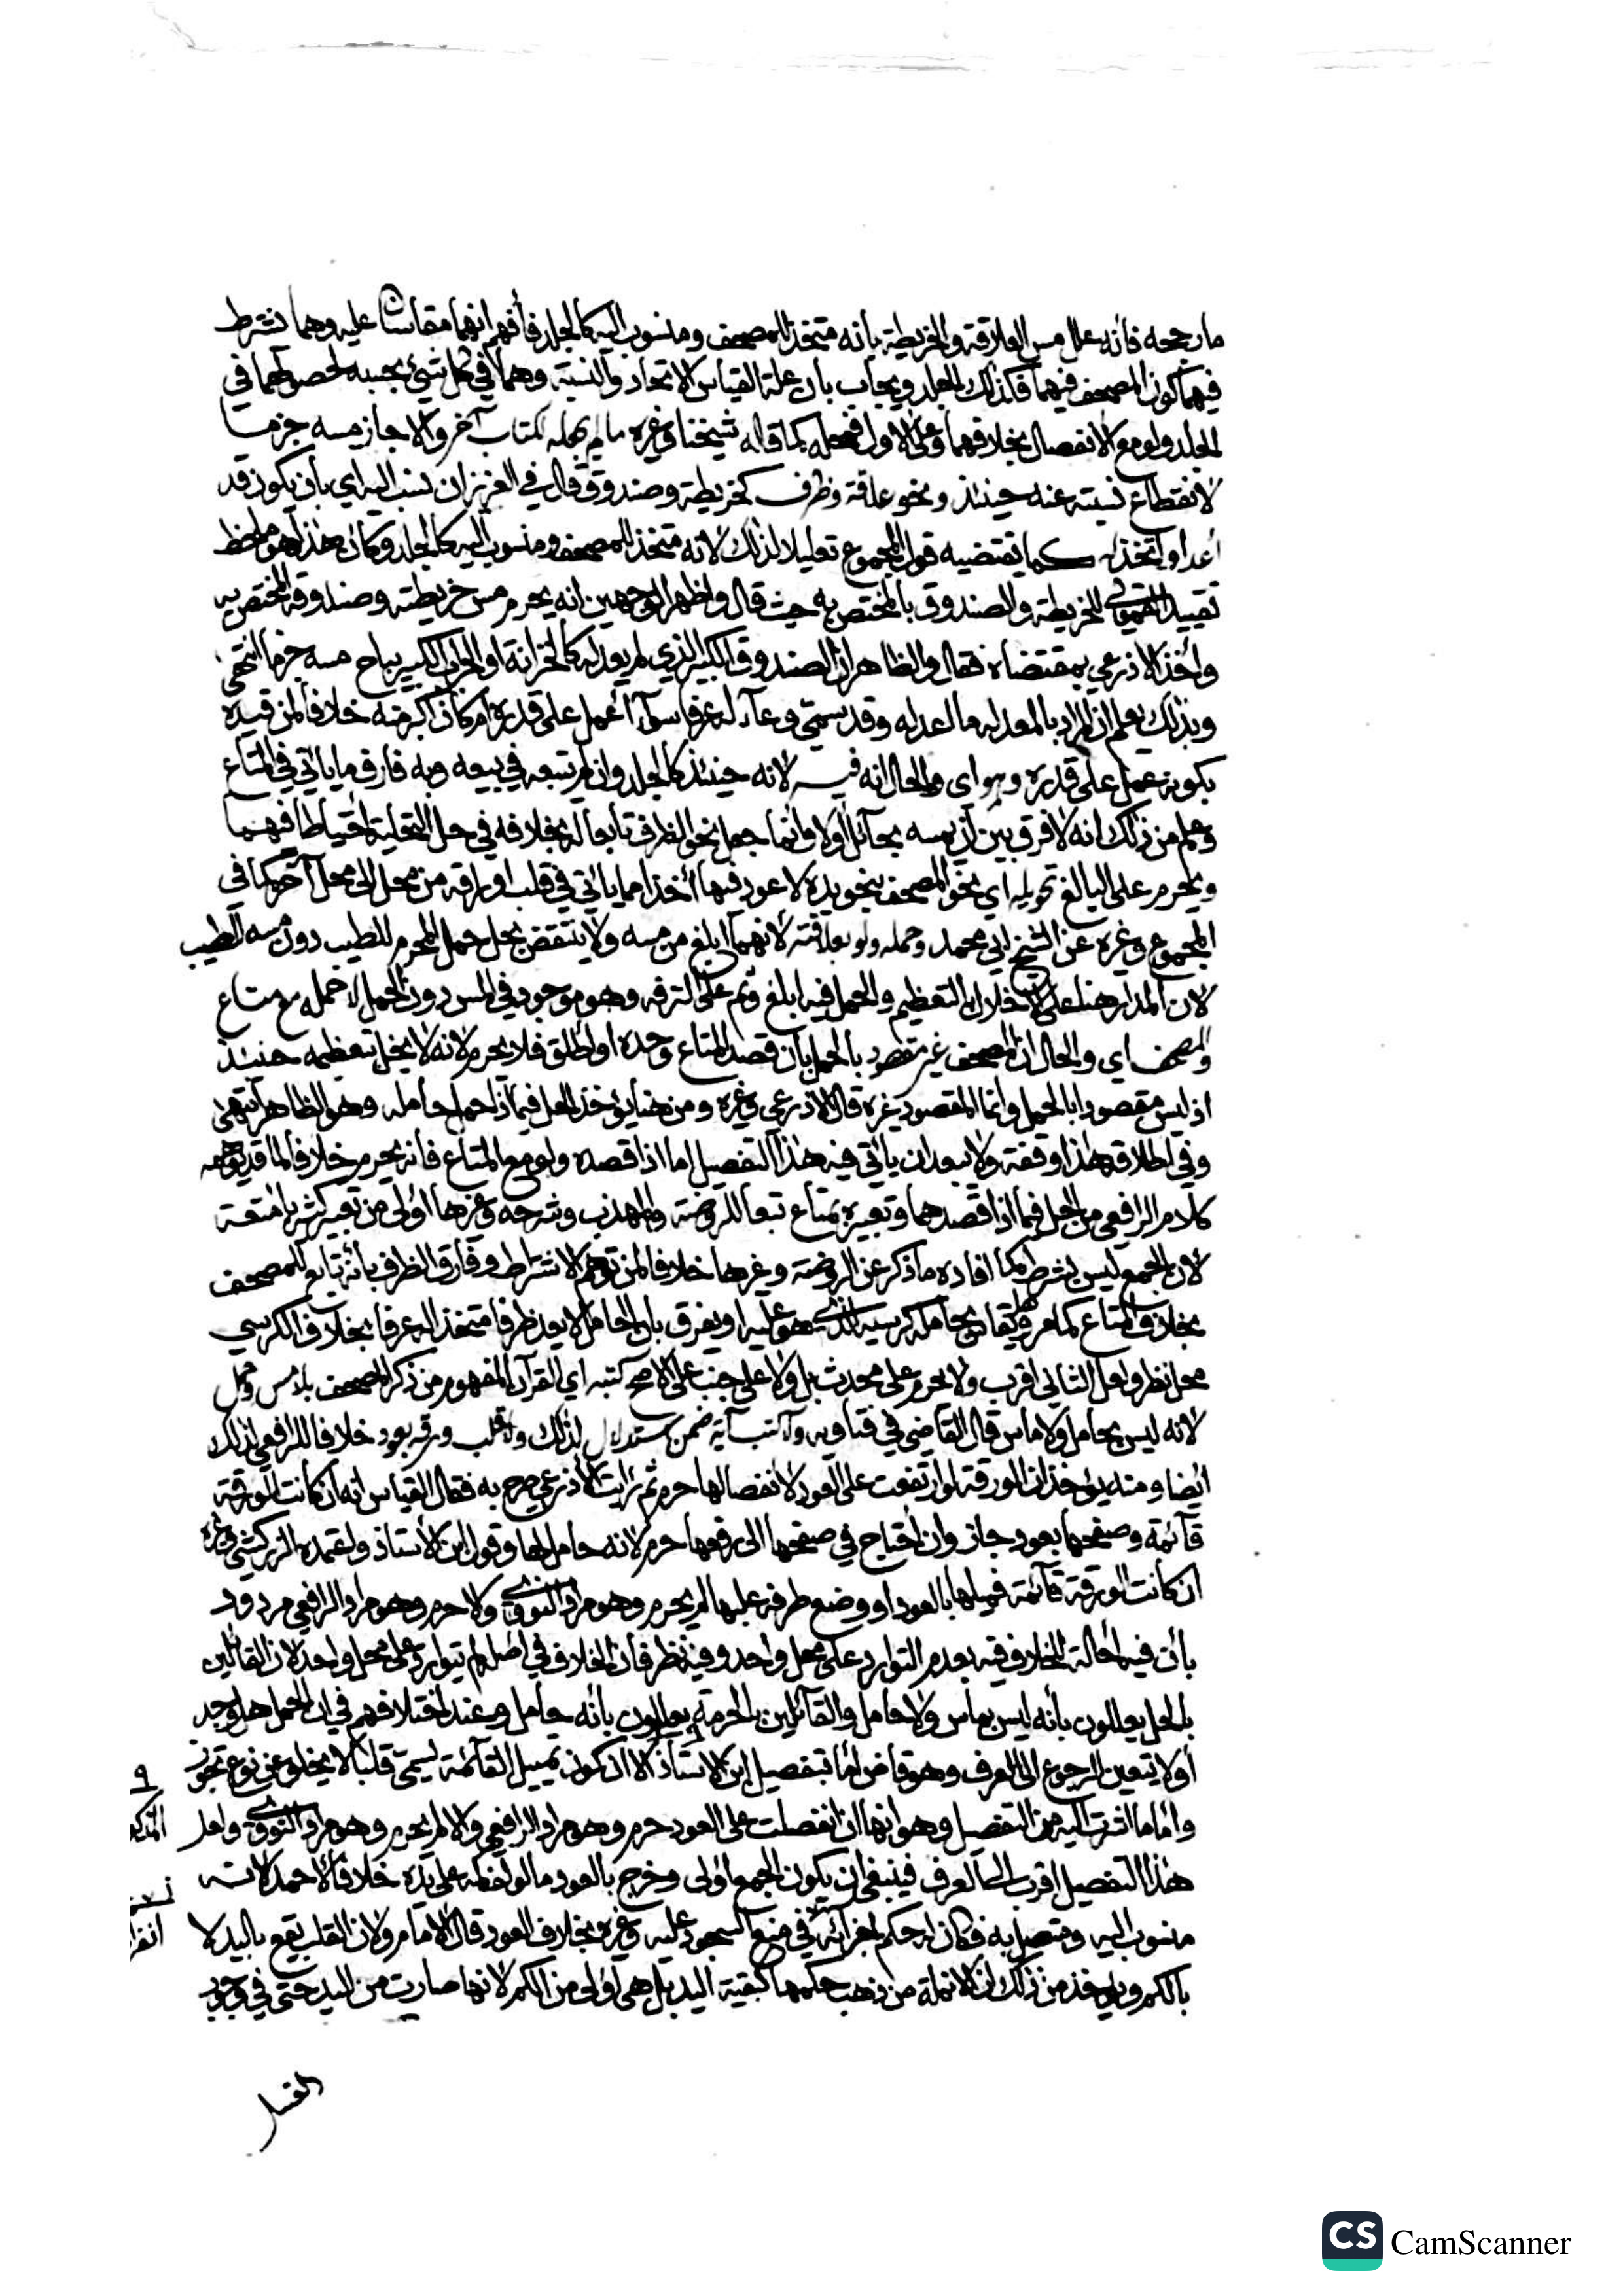 ما رجحه فانه علل مس العلاقة والخريطة بأنه متخذ للمصحف ومنسوب اليه كالجلد فأفهم انهما مقاسان عليه وهما يشترط
فيهما كون المصحف فيهما فكذلك الجلد ويجاب بان علة القياس الاتحاد والنسبة وهما في كل شيئ بحسبه لحصولهما في
الجلد ولو مع الانفصال بخلافهما وعلى الاول فمحله كما قاله شيخنا وغيره ما لم يجعله لكتاب آخر والا جاز مسه جزما
لانقطاع نسبته عنه حينئذ ونحو علاقة وظرف كخريطة وصندوق قال في العزيز ان نسب اليه اي بأن يكون قد
أعد او اتخذ له كما تقتضيه قول المجموع تعليلا لذلك لانه متخذ للمصحف ومنسوب اليه كالجلد وكان هذا هو ملحظ
تقييد القمولي للخريطة والصندوق بالمختص به حيث قال واظهر الوجهين انه يحرم مس خريطته وصندوقه المختص به
وأخذ الاذرعي بمقتضاه فقال والظاهر ان الصندوق الكبير الذي لم يعد له كالخزانة او الجراب الكبير يباح مسه جزما انتهى
وبذلك يعلم ان المراد بالمعد له ما اعد له وقد يسمى وعآء له عرفا سوآء أعمل على قدره ام كان اكبر منه خلافا لمن قيده
بكونه عمل على قدره وهو اي والحال انه فيه لانه حينئذ كالجلد وان لم يتبعه في بيعه وبه فارق ما ياتي في المتاع
وعلم من ذلك انه لا فرق بين ان يمسه بحائل أولا وانما جعل نحو الظرف تابعا له بخلافه في حل التحلية احتياطا فيهما
ويحرم على البالغ تحويله اي نحو المصحف بنحو يده لا عود فيها أخذا مما ياتي في قلب اوراقه من محل الى محل آخر كما في
المجموع وغيره عن الشيخ ابي محمد وحمله ولو بعلاقته لأنهما ابلغ من مسه ولا ينتقض بحل حمل المحرم للطيب دون مسه للطيب
لان المدار هنا على الاخلال بالتعظيم والحمل فيه ابلغ وثم على الترفه وهو موجود في المس دون الحمل لا حمله مع متاع
والمصحف اي والحال ان المصحف غير مقصود بالحمل بأن قصد المتاع وحده او اطلق فلا يحرم لانه لا يخل بتعظيمه حينئذ
اذ ليس مقصودا بالحمل وانما المقصود غيره قال الاذرعي وغيره ومن هنا يؤخذ الحل فيما اذا حمل حامله وهو الظاهر انتهى
وفي اطلاقه هذا وقفة ولا يبعد ان يأتي فيه هذا التفصيل اما اذا قصده ولو مع المتاع فانه يحرم خلافا لما قد يوهمه
كلام الرافعي من الحل فيما اذا قصدهما وتعبيره بمتاع تبعا للروضة والمهذب وشرحه وغيرها اولى من تعبير كثير بامتعة
لان الجمع ليس بشرط كما افاده ما ذكر عن الروضة وغيرها خلافا لمن توهم الاشتراط وفارق الظرف بأنه تابع للمصحف
بخلاف المتاع كما مر وهل يقاس بحامله كرسيه الذي هو عليه او يفرق بان الحامل لا يعد ظرفا متخذا له عرفا بخلاف الكرسي
محل نظر ولعل الثاني اقرب ولا يحرم على محدث بل ولا على جنب على الاصح كتبه اي القرآن المفهوم من ذكر المصحف بلا مس وحمل
لانه ليس بحامل ولا ماس قال القاضي في فتاويه وآ كتب آية ضمن استدلال لذلك ولا قلب ورقه بعود خلافا للرافعي لذلك
ايضا ومنه يؤخذ ان الورقة لو ارتفعت على العود لانفصالها حرم ثم رأيت الأذرعي صرح به فقال القياس انه ان كانت الورقة
قآئمة وصفحها بعود جاز وان احتاج في صفحها الى رفعها حرم لانه حامل لها وقول ابن الاستاذ واعتمده الزركشي وغيره
ان كانت الورقة قآئمة فميلها بالعود او وضع طرفه عليها لم يحرم وهو مراد النووي والا حرم وهو مراد الرافعي مردود
بأن فيه احالة الخلاف فيه بعدم التوارد على محل واحد وفيه نظر فان الخلاف في اصله لم يتوارد على محل واحد لان القائلين
بالحل يعللون بأنه ليس بماس ولا حامل والقآئلين بالحرمة يعللون بأنه حامل وعند اختلافهم في ان الحمل هل وجد
أو لا يتعين الرجوع الى العرف وهو قاض اما بتفصيل ابن الاستاذ الا ان كون تمييل القآئمة يسمى قلبا لا يخلو عن نوع تجوز
وأما ما اشرت اليه من التفصيل وهو انها ان انفصلت على العود حرم وهو مراد الرافعي والا لم يحرم وهو مراد النووي ولعل
هذا التفصيل اقرب الى العرف فينبغي ان يكون الجمع به اولى وخرج بالعود ما لو لف كمه على يده خلافا لأحمد لانه
منسوب اليه ومتصل به فكان له حكم اجزائه في منع السجود عليه وغيره بخلاف العود قال الامام ولان القلب يقع باليد لا
بالكم ويؤخذ من ذلك ان الانملة من ذهب حكمها كبقية اليد بل هي اولى من الكم لانها صارت من اليد حتى في وجوب
الغسل
CS CamScanner